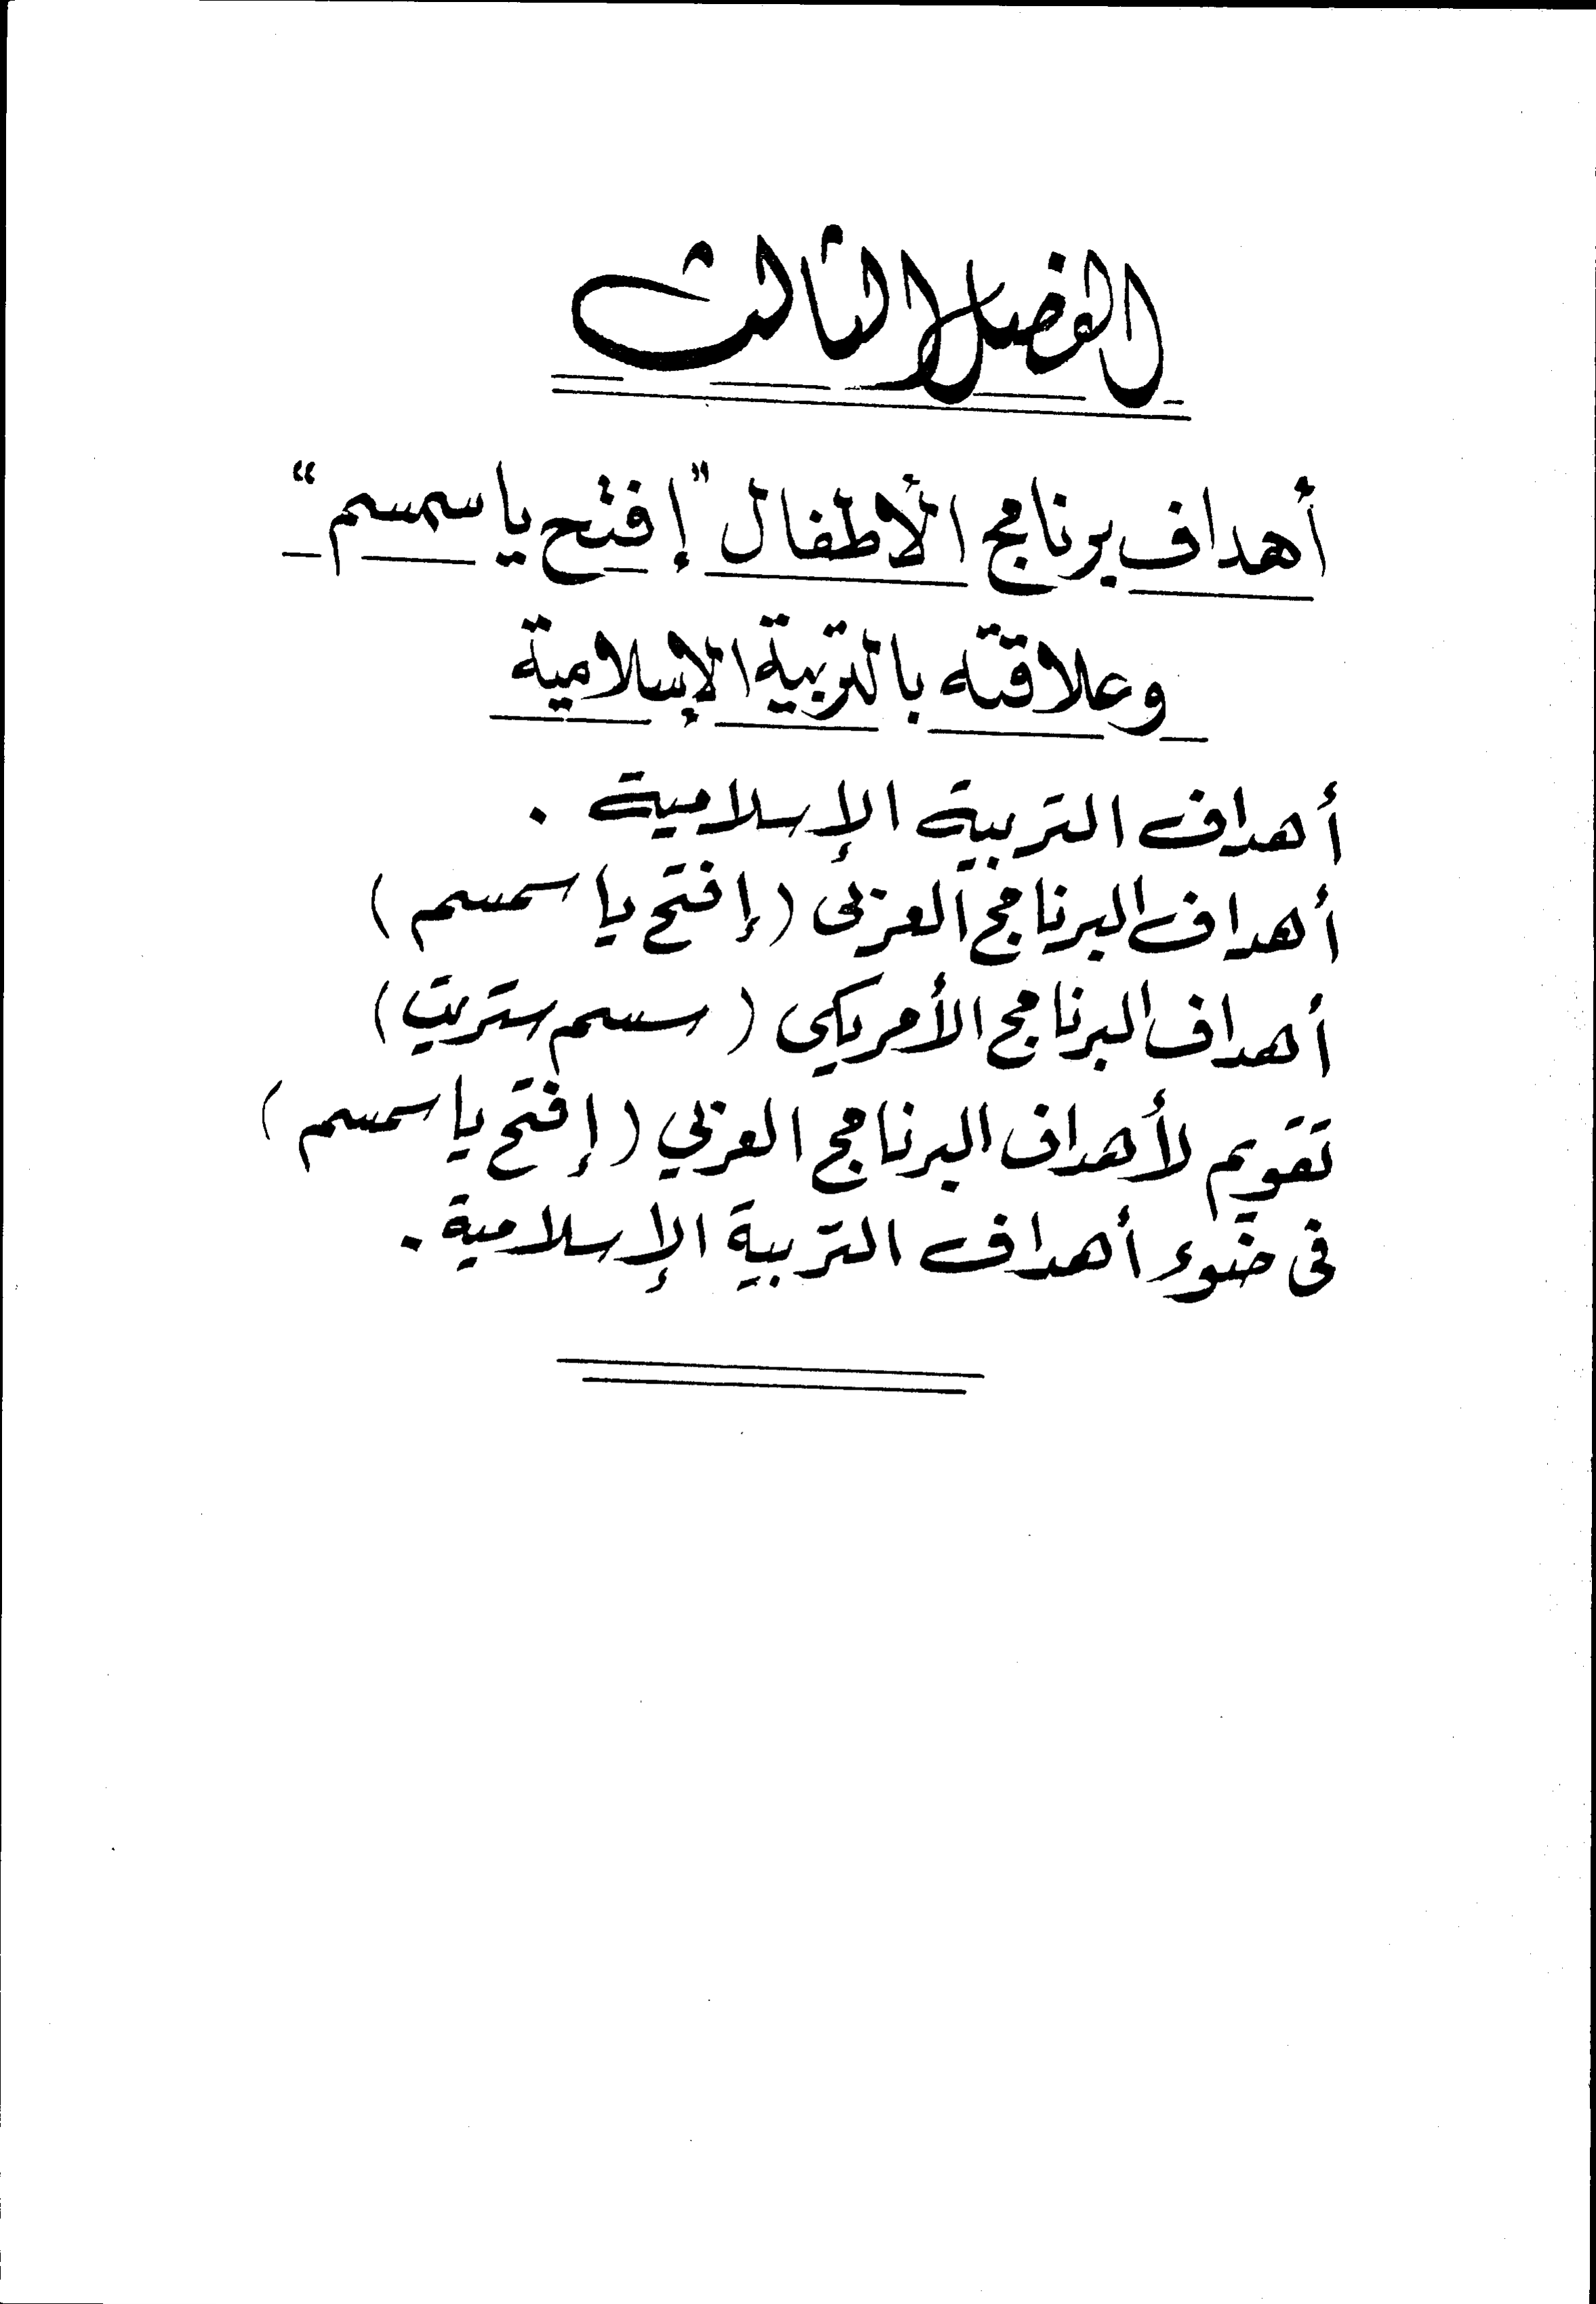 الفصل الثالث
أهداف برنامج الأطفال "إفتح يا سمسم"
وعلاقته بالتربية الإسلامية
أهداف التربية الإسلامية .
أهداف البرنامج العربى (إفتح يا سمسم)
أهداف البرنامج الأمريكي (سسم ستريت)
تقويم لأهداف البرنامج العربي (إفتح يا سمسم)
فى ضوء أهداف التربية الإسلامية .